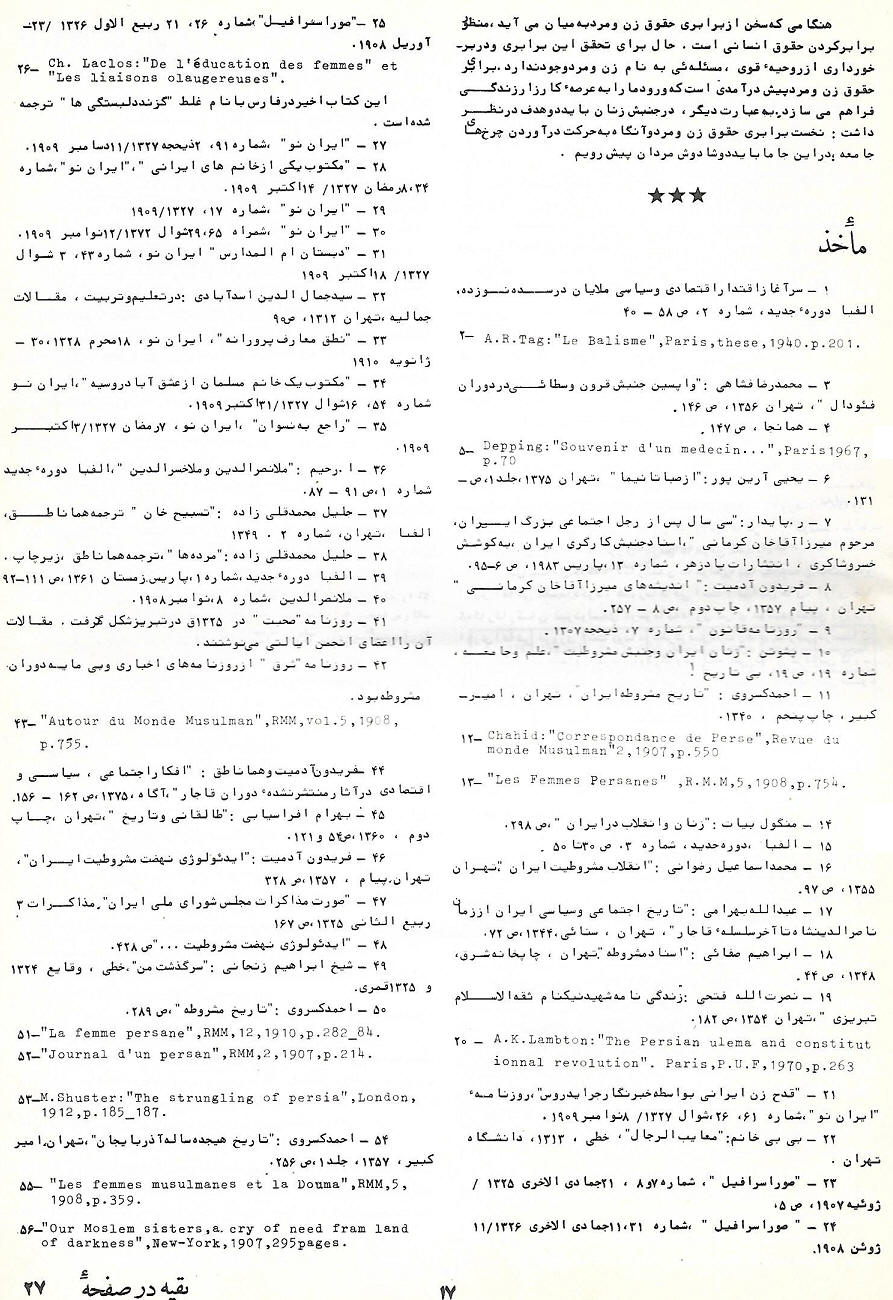 هنگامی که سخن از برابری حقوق زن و مرد به میان می آید، منظور
برابر کردن حقوق انسانی است . حال برای تحقق این برابری و در بر-
خورداری از روحیهٔ قوی ، مسئله‌ئی به نام زن و مرد وجود ندارد . برابری
حقوق زن و مرد پیش درآمدی است که ورود ما را به عرصهٔ کارزار زندگی
فراهم می سازد. به عبارت دیگر ، در جنبش زنان باید دو هدف در نظر
داشت : نخست برابری حقوق زن و مرد و آنگاه به حرکت درآوردن چرخ‌های
جامعه ، در این جا ما باید دوشادوش مردان پیش رویم .
★★★
مأخذ
۱ – سرآغاز اقتدار اقتصادی و سیاسی ملایان در سده نوزده،
الفبا دورهٔ جدید، شماره ۲، ص ۵۸ – ۴۰
۲– A.R.Tag:"Le Balisme",Paris,these,1940.p.201.
۳ – محمدرضا فشاهی :"واپسین جنبش قرون وسطائی در دوران
فئودال "، تهران ۱۳۵۶، ص ۱۴۶.
۴ – همانجا ، ص ۱۴۷.
۵– Depping:"Souvenir d'un medecin...",Paris1967,
p.70
۶ – یحیی آرین پور :"از صبا تا نیما " ،تهران ۱۳۷۵،جلد۱،ص –
۱۳۱.
۷ – ر.پایدار:"سی سال پس از رجل اجتماعی بزرگ ایران،
مرحوم میرزا آقاخان کرمانی "،اسناد جنبش کارگری ایران ،به کوشش
خسرو شاکری ، انتشارات پادزهر، شماره ۱۳،پاریس ۱۹۸۳، ص ۶–۹۵.
۸ – فریدون آدمیت :" اندیشه‌های میرزا آقاخان کرمانی "
تهران ، پیام ۱۳۵۷، چاپ دوم ،ص ۸ – ۲۵۷.
۹ – "روزنامه قانون "، شماره ۷، ذیحجه ۱۳۰۷.
۱۰ – پشوتن :"زنان ایران و جنبش مشروطیت "،علم و جامعه ،
شماره ۱۹، ص ۱۹، بی تاریخ !
۱۱ – احمد کسروی : "تاریخ مشروطه ایران"، تهران ، امیر-
کبیر، چاپ پنجم ، ۱۳۴۰.
۱۲– Chahid:"Correspondance de Perse",Revue du
monde Musulman"2,1907,p.550
۱۳– "Les Femmes Persanes" ,R.M.M,5,1908,p.754.
۱۴ – منگول بیات :"زنان و انقلاب در ایران "،ص ۲۹۸.
۱۵ – الفبا ،دوره جدید، شماره ۳. ص ۳۰ تا ۵۰ .
۱۶ – محمد اسماعیل رضوانی :"انقلاب مشروطیت ایران "،تهران
۱۳۵۵، ص ۹۷.
۱۷ – عبدالله بهرامی :"تاریخ اجتماعی وسیاسی ایران از زمان
ناصرالدینشاه تا آخر سلسلهٔ قاجار"، تهران ، سنائی ،۱۳۴۴،ص ۷۲.
۱۸ – ابراهیم صفائی :"اسناد مشروطه "،تهران ، چاپخانه شرق،
۱۳۴۸، ص ۴۴.
۱۹ – نصرت الله فتحی :زندگی نامه شهید نیکنام ثقه الاسلام
تبریزی "،تهران ۱۳۵۴،ص ۱۸۲.
۲۰ – A.K.Lambton:"The Persian ulema and constitut
ionnal revolution". Paris,P.U.F,1970,p.263
۲۱ – "قدح زن ایرانی بواسطه خبرنگار جراید روس"،روزنامهٔ
"ایران نو"،شماره ۶۱، ۲۶،شوال ۱۳۲۷/ ۸نوامبر۱۹۰۹.
۲۲ – بی بی خانم:"معایب الرجال"، خطی ، ۱۳۱۳، دانشگاه
تهران .
۲۳ – "صوراسرافیل "، شماره ۷و۸ ، ۲۱جمادی الاخری ۱۳۲۵ /
ژوئیه ۱۹۰۷، ص ۵.
۲۴ – " صوراسرافیل " ،شماره ۱۱،۳۱جمادی الاخری ۱۱/۱۳۲۶
ژوئن ۱۹۰۸.
۲۵ –"صوراسرافیل"،شماره ۲۶، ۲۱ ربیع الاول ۱۳۲۶ /۲۳–
آوریل ۱۹۰۸.
۲۶– Ch. Laclos:"De l'éducation des femmes" et
"Les liaisons olaugereuses".
این کتاب اخیر در فارس با نام غلط "گزند دلبستگی ها " ترجمه
شده است .
۲۷ – "ایران نو" ،شماره ۹۱، ۲ذیحجه ۱۱/۱۳۲۷دسامبر ۱۹۰۹.
۲۸ – "مکتوب یکی از خانم های ایرانی "،"ایران نو"،شماره
۸،۳۴رمضان ۱۳۲۷/ ۱۴اکتبر ۱۹۰۹.
۲۹ – "ایران نو" ،شماره ۱۷، ۱۹۰۹/۱۳۲۷
۳۰ – "ایران نو"، شمراه ۲۹،۶۵شوال ۱۲/۱۳۷۲نوامبر ۱۹۰۹.
۳۱ – "دبستان ام المدارس " ایران نو، شماره ۴۳، ۳ شوال
۱۳۲۷/ ۱۸اکتبر ۱۹۰۹
۳۲ – سید جمال الدین اسدآبادی :در تعلیم و تربیت ، مقالات
جمالیه ،تهران ۱۳۱۲، ص۹۰
۳۳ – "نطق معارف پرورانه"، ایران نو، ۱۸محرم ۳۰،۱۳۲۸ –
ژانویه ۱۹۱۰
۳۴ – "مکتوب یک خانم مسلمان از عشق آباد روسیه "،ایران نو
شماره ۵۴، ۱۶شوال ۳۱/۱۳۲۷اکتبر ۱۹۰۹.
۳۵ – "راجع به نسوان" ،ایران نو، ۷رمضان ۳/۱۳۲۷اکتبر
۱۹۰۹.
۳۶ – ا.رحیم :"ملانصرالدین و ملاخسرالدین "،الفبا دورهٔ جدید
شماره ۱،ص ۹۱ – ۸۷.
۳۷ – جلیل محمدقلی زاده :"تسبیح خان " ترجمه هما ناطق،
الفبا ،تهران، شماره ۲ . ۱۳۴۹
۳۸ – جلیل محمدقلی زاده :"مرده‌ها "،ترجمه هما ناطق ،زیرچاپ .
۳۹ – الفبا دورهٔ جدید،شماره ۱،پاریس.زمستان ۱۳۶۱،ص ۱۱۱–۹۲
۴۰ – ملانصرالدین ،شماره ۸،نوامبر۱۹۰۸.
۴۱ – روزنامه "صحبت " در ۱۳۲۵ق در تبریز شکل گرفت . مقالات
آن را اعضای انجمن ایالتی می‌نوشتند.
۴۲ – روزنامه "شرق " از روزنامه‌های اخباری وبی مایه دوران
مشروطه بود.
۴۳– "Autour du Monde Musulman",RMM,vol.5,1908,
p.755.
۴۴ – فریدون آدمیت و هما ناطق : "افکار اجتماعی ، سیاسی و
اقتصادی در آثار منتشر نشدهٔ دوران قاجار"،آگاه ،۱۳۷۵،ص ۱۶۲ – ۱۵۶.
۴۵ – بهرام افراسیابی :"طالقانی و تاریخ "،تهران ،چاپ
دوم ، ۱۳۶۰،ص۵۴ و ۱۲۱.
۴۶ – فریدون آدمیت :"ایدئولوژی نهضت مشروطیت ایران"،
تهران،پیام ، ۱۳۵۷،ص ۳۲۸
۴۷ – "صورت مذاکرات مجلس شورای ملی ایران".مذاکرات ۳
ربیع الثانی ۱۳۲۵،ص ۱۶۷
۴۸ – "ایدئولوژی نهضت مشروطیت ..."ص ۴۲۸.
۴۹ – شیخ ابراهیم زنجانی :"سرگذشت من".خطی ، وقایع ۱۳۲۴
و ۱۳۲۵قمری.
۵۰ – احمدکسروی :"تاریخ مشروطه "،ص ۲۸۹.
۵۱–"La femme persane",RMM,12,1910,p.282_84.
۵۲–"Journal d'un persan",RMM,2,1907,p.214.
۵۳–M.Shuster:"The strungling of persia",London,
1912,p.185_187.
۵۴ – احمدکسروی :"تاریخ هیجده ساله آذربایجان"،تهران.امیر
کبیر ، ۱۳۵۷، جلد ۱،ص ۲۵۶.
۵۵– "Les femmes musulmanes et la Douma",RMM,5,
1908,p.359.
۵۶–"Our Moslem sisters,a cry of need fram land
of darkness",New-York,1907,295pages.
بقیه در صفحهٔ ۲۷
۱۷